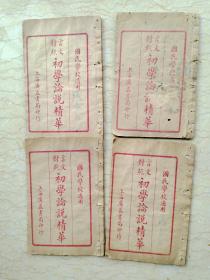 國民學校適用
言文對照
初學論說精華
上海廣益書局印行
國民學校適用
言文對照
初學論說精華
上海廣益書局印行
國民學校適用
言文對照
初學論說精華
上海廣益書局印行
國民學校適用
言文對照
初學論說精華
上海廣益書局印行